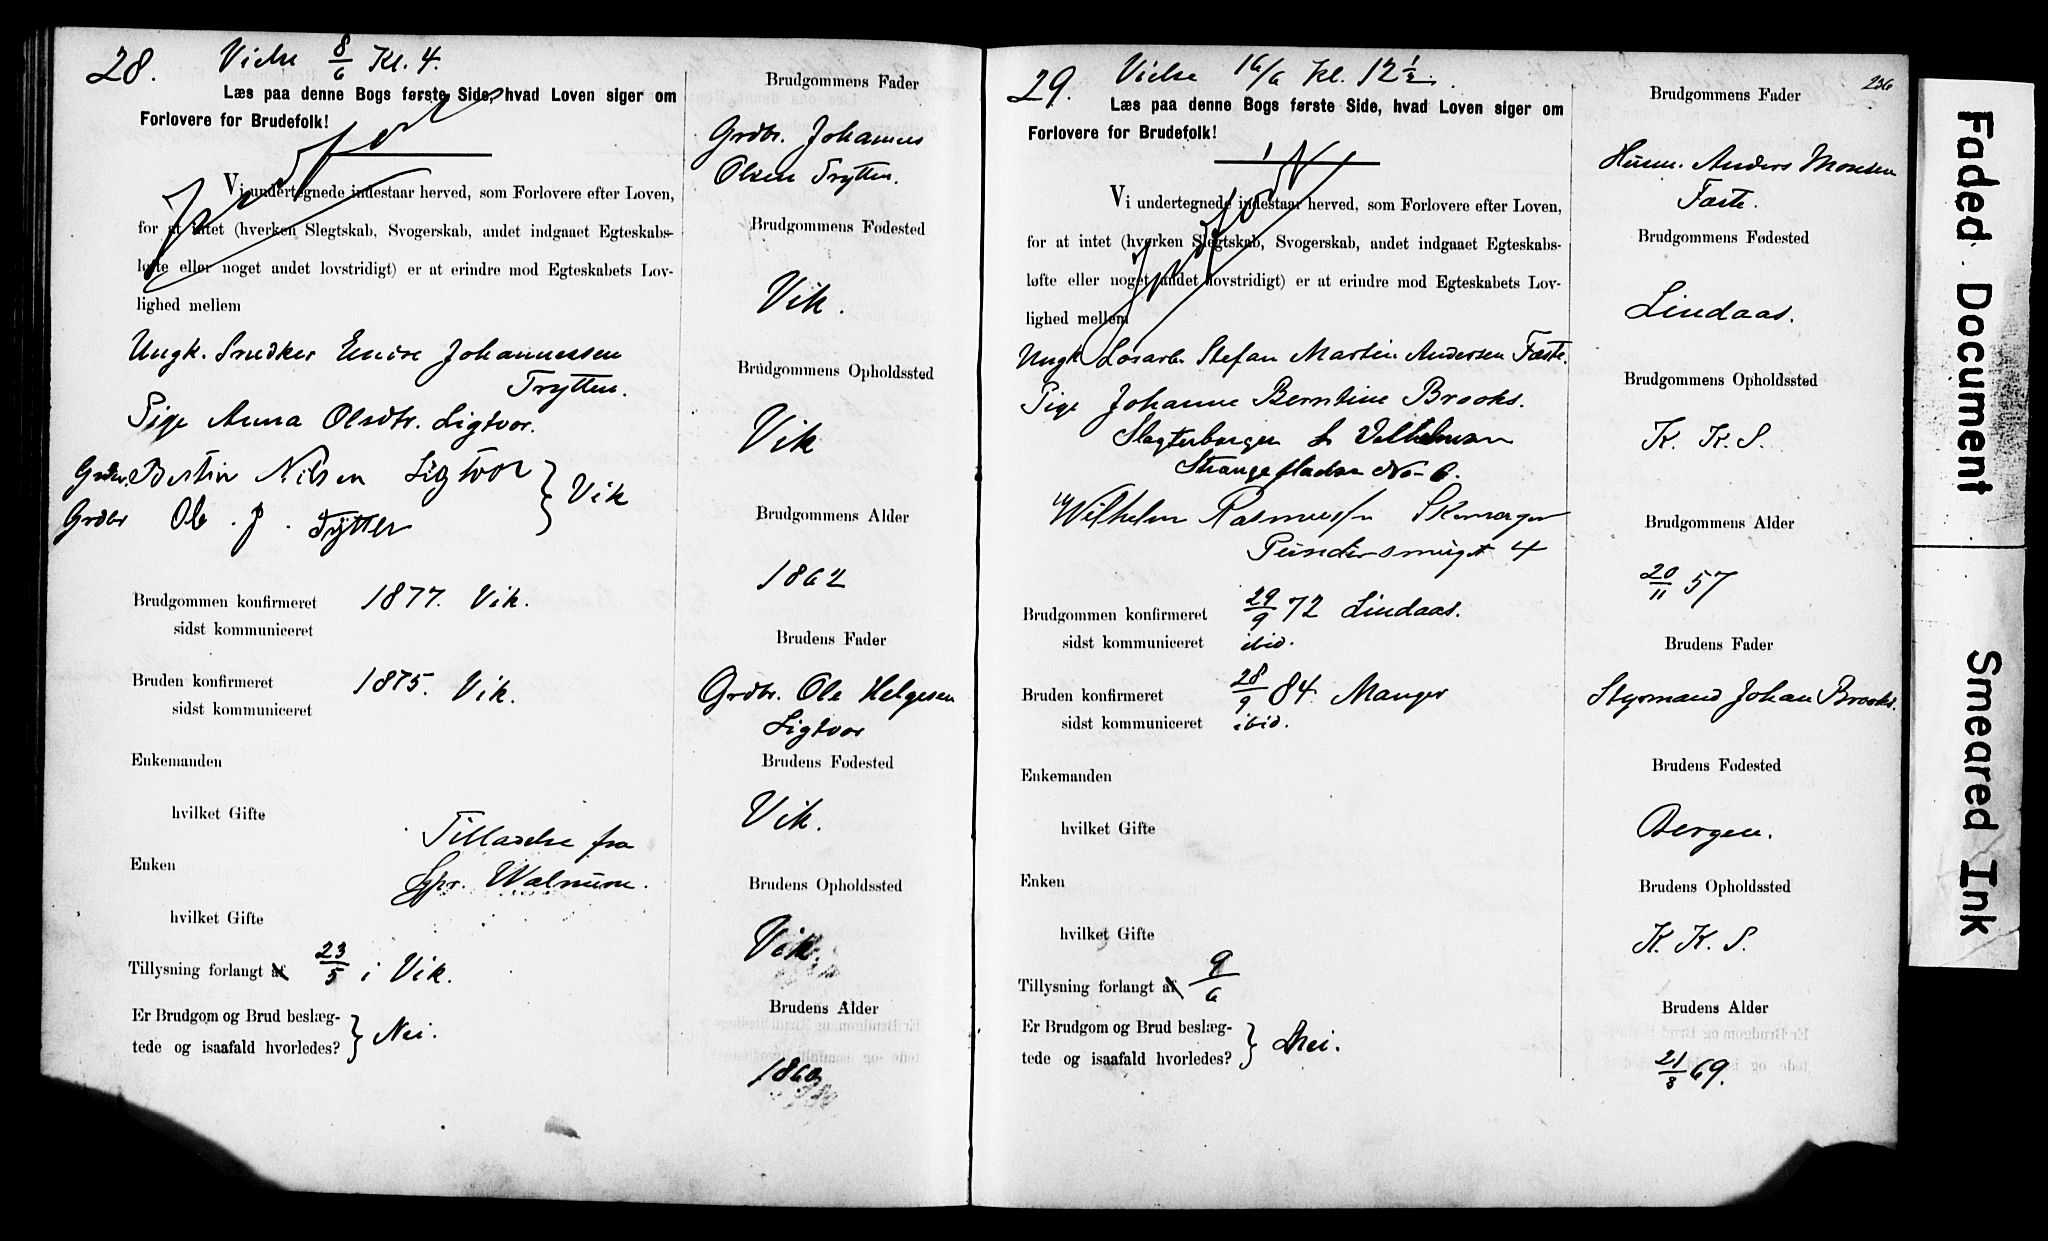 28. Vielse 8/6 Kl. 4.
Læs paa denne Bogs første Side, hvad Loven siger om
Forlovere for Brudefolk!
Vi undertegnede indestaar herved, som Forlovere efter Loven,
for at intet (hverken Slegtskab, Svogerskab, andet indgaaet Egteskabs-
løfte eller noget andet lovstridigt) er at erindre mod Egteskabets Lov-
lighed mellem
Ungk. Snedker Endre Johannessen
Trytten.
Pige Anna Olsdtr. Ligtvor.
Grdbr. Bertin Nilsen Ligtvor } Vik
Grdbr Ole J. Trytten
Brudgommen konfirmeret 1877. Vik.
sidst kommuniceret
Bruden konfirmeret 1875. Vik.
sidst kommuniceret
Enkemanden
hvilket Gifte
Tilladelse fra
Enken
Spr. Walnum.
hvilket Gifte
Tillysning forlangt af 23/5 i Vik.
Er Brudgom og Brud beslæg-
tede og isaafald hvorledes? } Nei.
Brudgommens Fader
Grdbr. Johannes
Olsen Trytten.
Brudgommens Fødested
Vik.
Brudgommens Opholdssted
Vik
Brudgommens Alder
1862
Brudens Fader
Grdbr. Ole Helgesen
Ligtvor
Brudens Fødested
Vik.
Brudens Opholdssted
Vik.
Brudens Alder
1860
29. Vielse 16/6 Kl. 12 1/2.
236
Læs paa denne Bogs første Side, hvad Loven siger om
Forlovere for Brudefolk!
Vi undertegnede indestaar herved, som Forlovere efter Loven,
for at intet (hverken Slegtskab, Svogerskab, andet indgaaet Egteskabs-
løfte eller noget andet lovstridigt) er at erindre mod Egteskabets Lov-
lighed mellem
Ungk. Løsarb. Stefan Martin Andersen Fæste.
Pige Johanne Berntine Brooks.
Strangehagen No 6.
Wilhelm Rasmussen
Pundersmuget 4
Brudgommen konfirmeret 29/9 72 Lindaas.
sidst kommuniceret ibid.
Bruden konfirmeret 28/9 84. Manger
sidst kommuniceret ibid.
Enkemanden
hvilket Gifte
Enken
hvilket Gifte
Tillysning forlangt af 9/6
Er Brudgom og Brud beslæg-
tede og isaafald hvorledes? } Nei.
Brudgommens Fader
Husm. Anders Monsen
Fæste.
Brudgommens Fødested
Lindaas.
Brudgommens Opholdssted
K. K. S.
Brudgommens Alder
20/11 57
Brudens Fader
Styrmand Johan Brooks.
Brudens Fødested
Bergen.
Brudens Opholdssted
K. K. S.
Brudens Alder
21/8 69.
Faded Document
Smeared Ink